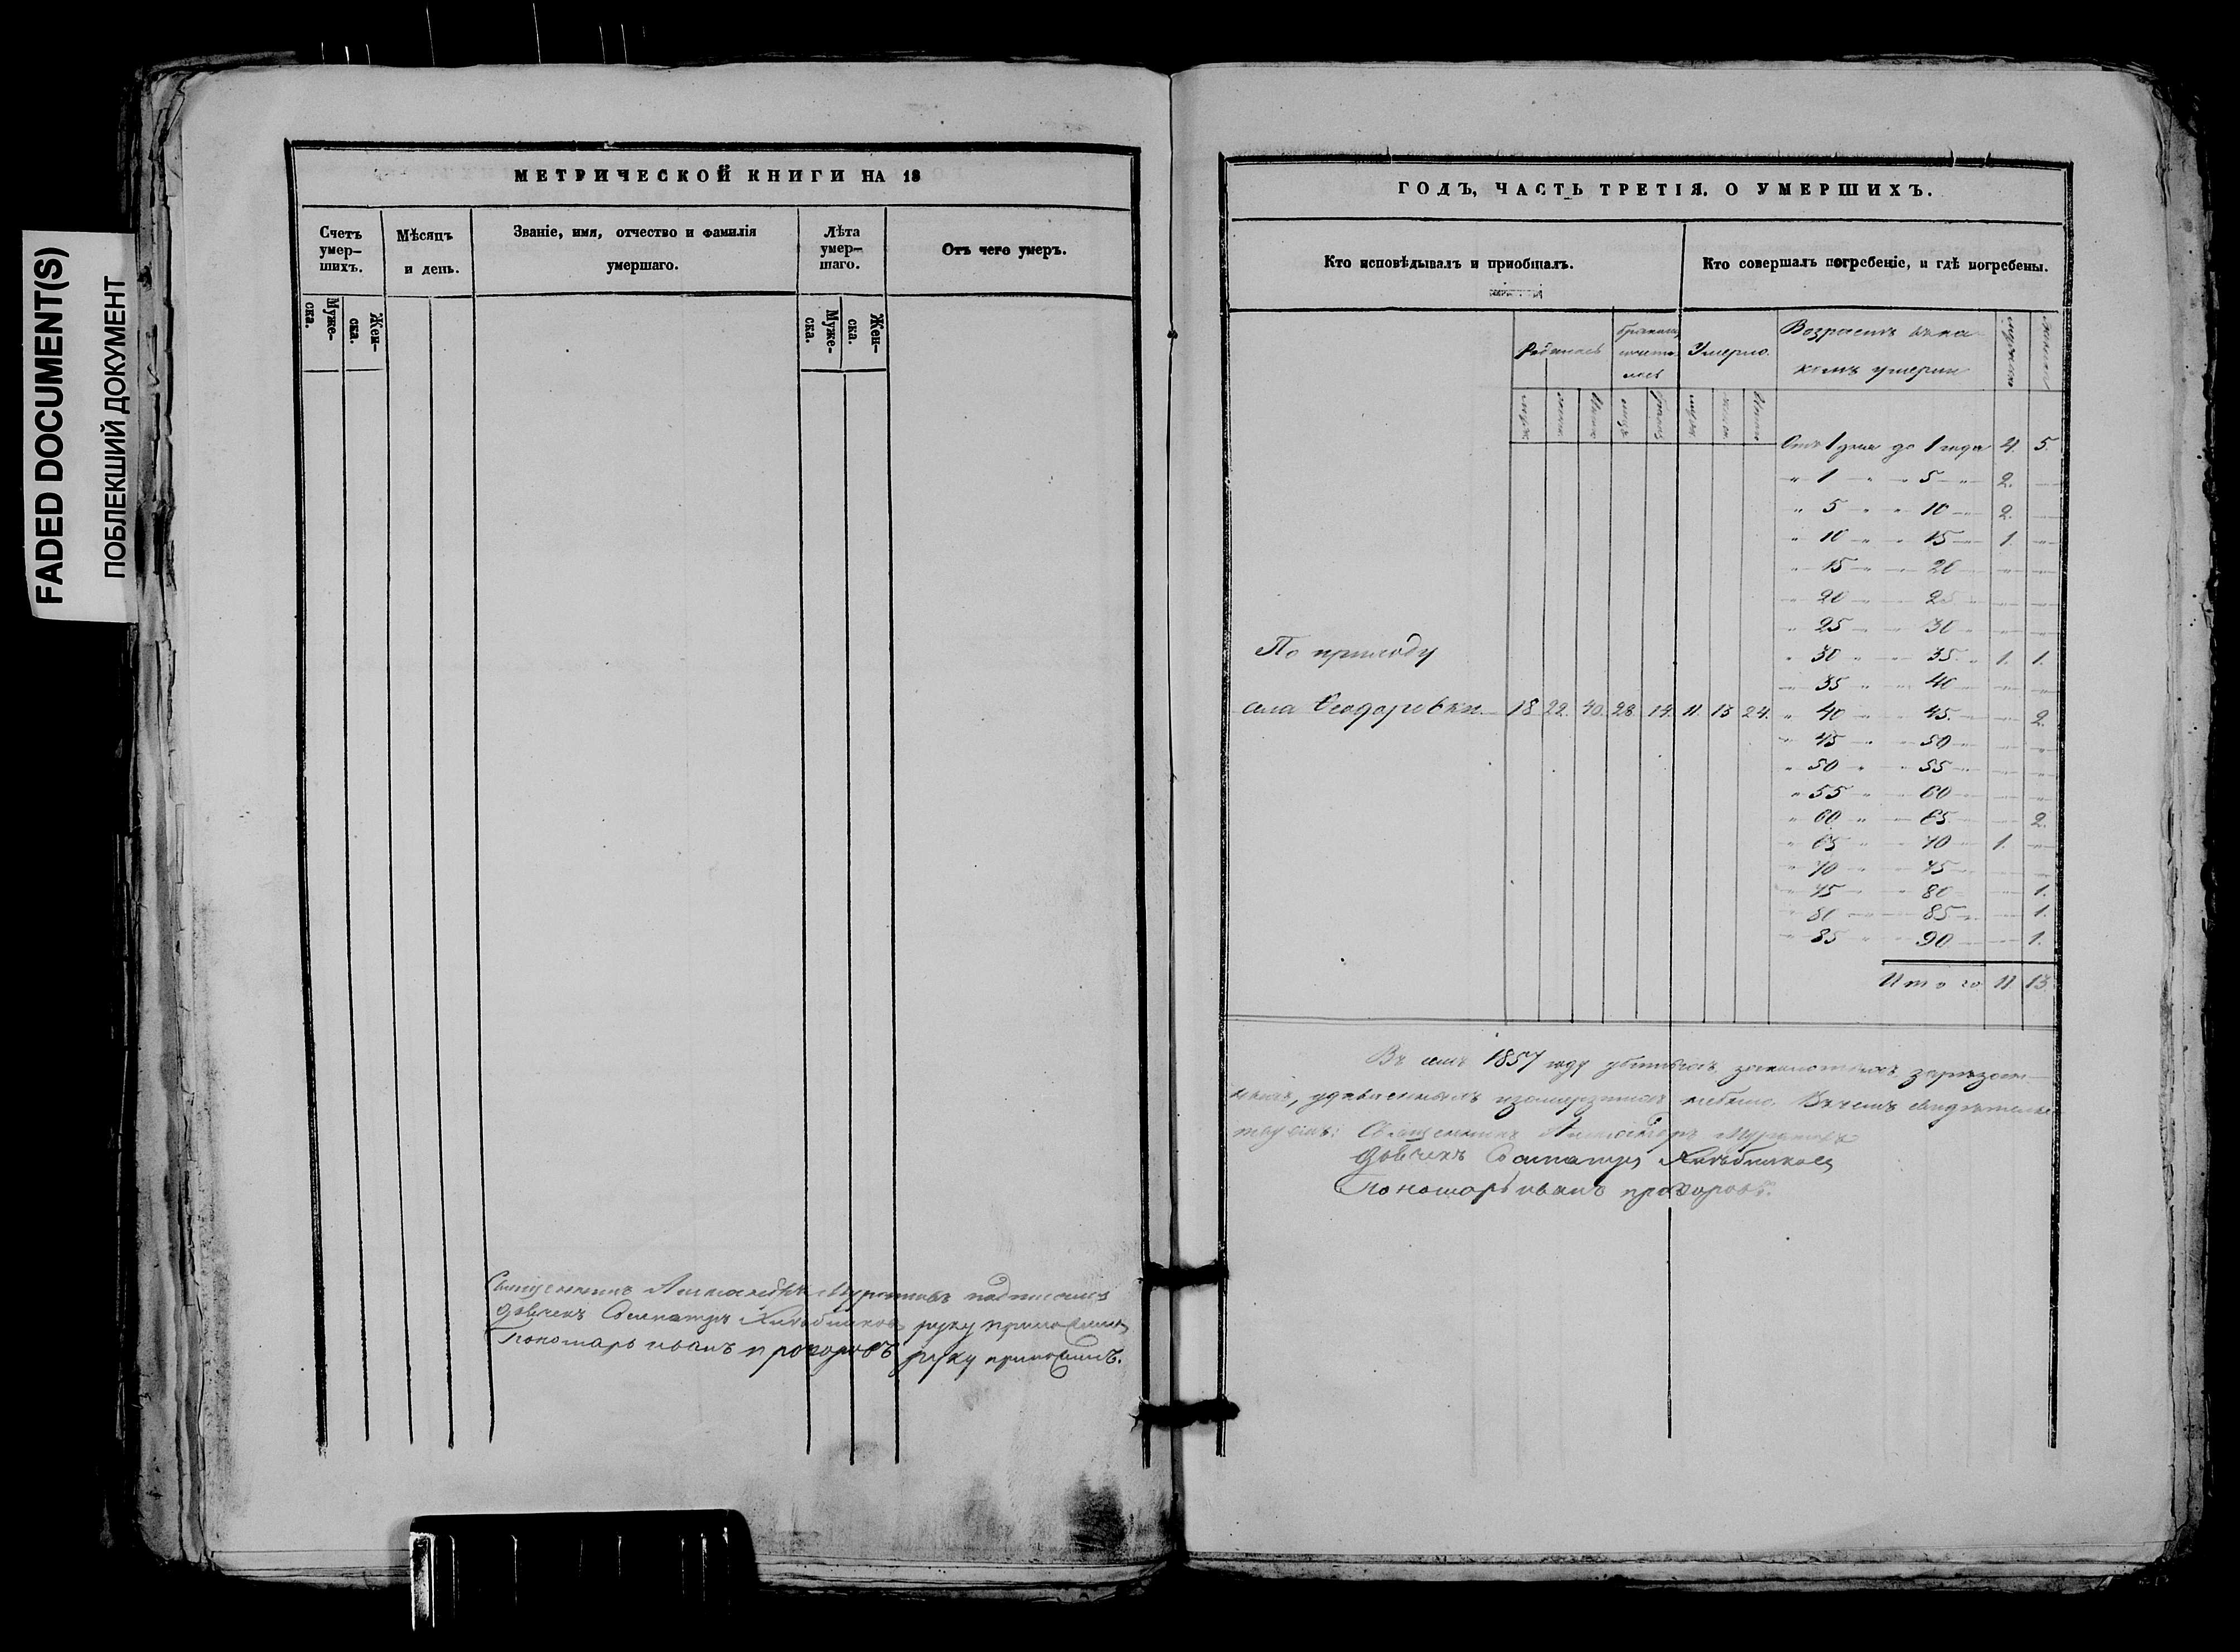 FADED DOCUMENT(S)
ПОБЛЕКШИЙ ДОКУМЕНТ
МЕТРИЧЕСКОЙ КНИГИ НА 18
Счетъ умер-
шихъ.
Мѣсяцъ
и день.
Званіе, имя, отчество и фамилія
умершаго.
Лѣта
умер-
шаго.
Отъ чего умеръ.
Муже-
ска.
Жен-
ска.
Муже-
ска.
Жен-
ска.
Священникъ подписался
Дьячекъ руку приложилъ
Пономарь иванъ прохоровъ руку приложилъ.
ГОДЪ, ЧАСТЬ ТРЕТІЯ. О УМЕРШИХЪ.
Кто исповѣдывалъ и пріобщалъ.
Кто совершалъ погребеніе, и гдѣ погребены.
Родилось
Умерло.
Возрастъ въ ка-
комъ умерли
Отъ 1 дня до 1 года 4. 5.
" 1 " " 5 " 2. "
" 5 " " 10 " 2. "
" 10 " " 15 " 1. "
" 15 " " 20 " "
" 20 " " 25 " "
" 25 " " 30 " "
" 30 " " 35 " 1. 1.
" 35 " " 40 " "
" 40 " " 45 " 2.
" 45 " " 50 " "
" 50 " " 55 " "
" 55 " " 60 " "
" 60 " " 65 " 2.
" 65 " " 70 " 1. "
" 70 " " 75 " "
" 75 " " 80 " 1.
" 80 " " 85 " 1.
" 85 " " 90 " 1.
Итого 11 13.
По приходу
села Феодоровки 18 22. 40. 28. 14. 11. 13 24.
Въ семъ 1857 году убитыхъ,
удавленныхъ небыло. Въ чемъ свидѣтельс-
твуемъ: Священникъ
Дьячекъ
Пономарь иванъ прохоровъ.